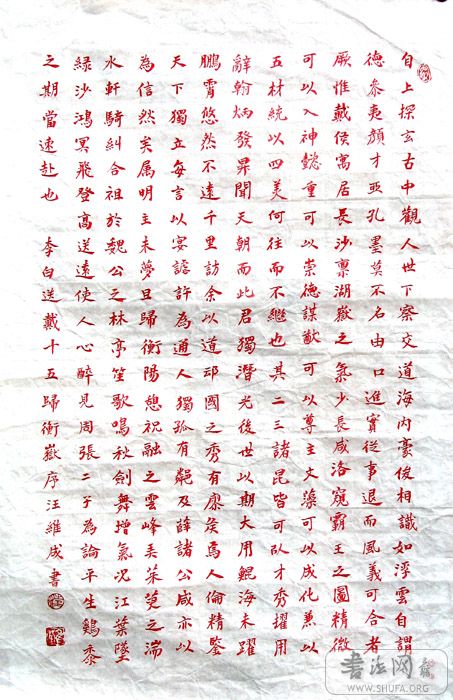 自上探玄古中觀人世下察交道海内豪俊相識如浮雲自謂
德叅夷顔才亞孔墨莫不名由口進實從事退而風義可合者
厥惟戴侯寓居長沙禀湖嶽之氣少長咸洛窺霸王之圖精微
可以入神懿重可以崇德謀猷可以尊主文藻可以成化兼以
五材統以四美何往而不繼也其二三諸昆皆可以才秀擢用
辭翰炳發昇聞天朝而此君獨潛光後世以期大用鯤海未躍
鵬霄悠然不遠千里訪余以道邛國之秀有廖侯焉人倫精鑒
天下獨立每言以宴謔許為通人獨孤有鄰及薛諸公咸亦以
為信然矣属明主未夢且歸衡陽憩祝融之雲峰弄茱萸之湍
水軒騎糾合祖於魏公之林亭笙歌鳴秋劍舞增氣况江葉墜
綠沙鴻冥飛登高送遠使人心醉見周張二子為論平生鷄黍
之期當速赴也 李白送戴十五歸衡嶽序汪維成書
书法网
WWW.SHUFA.ORG